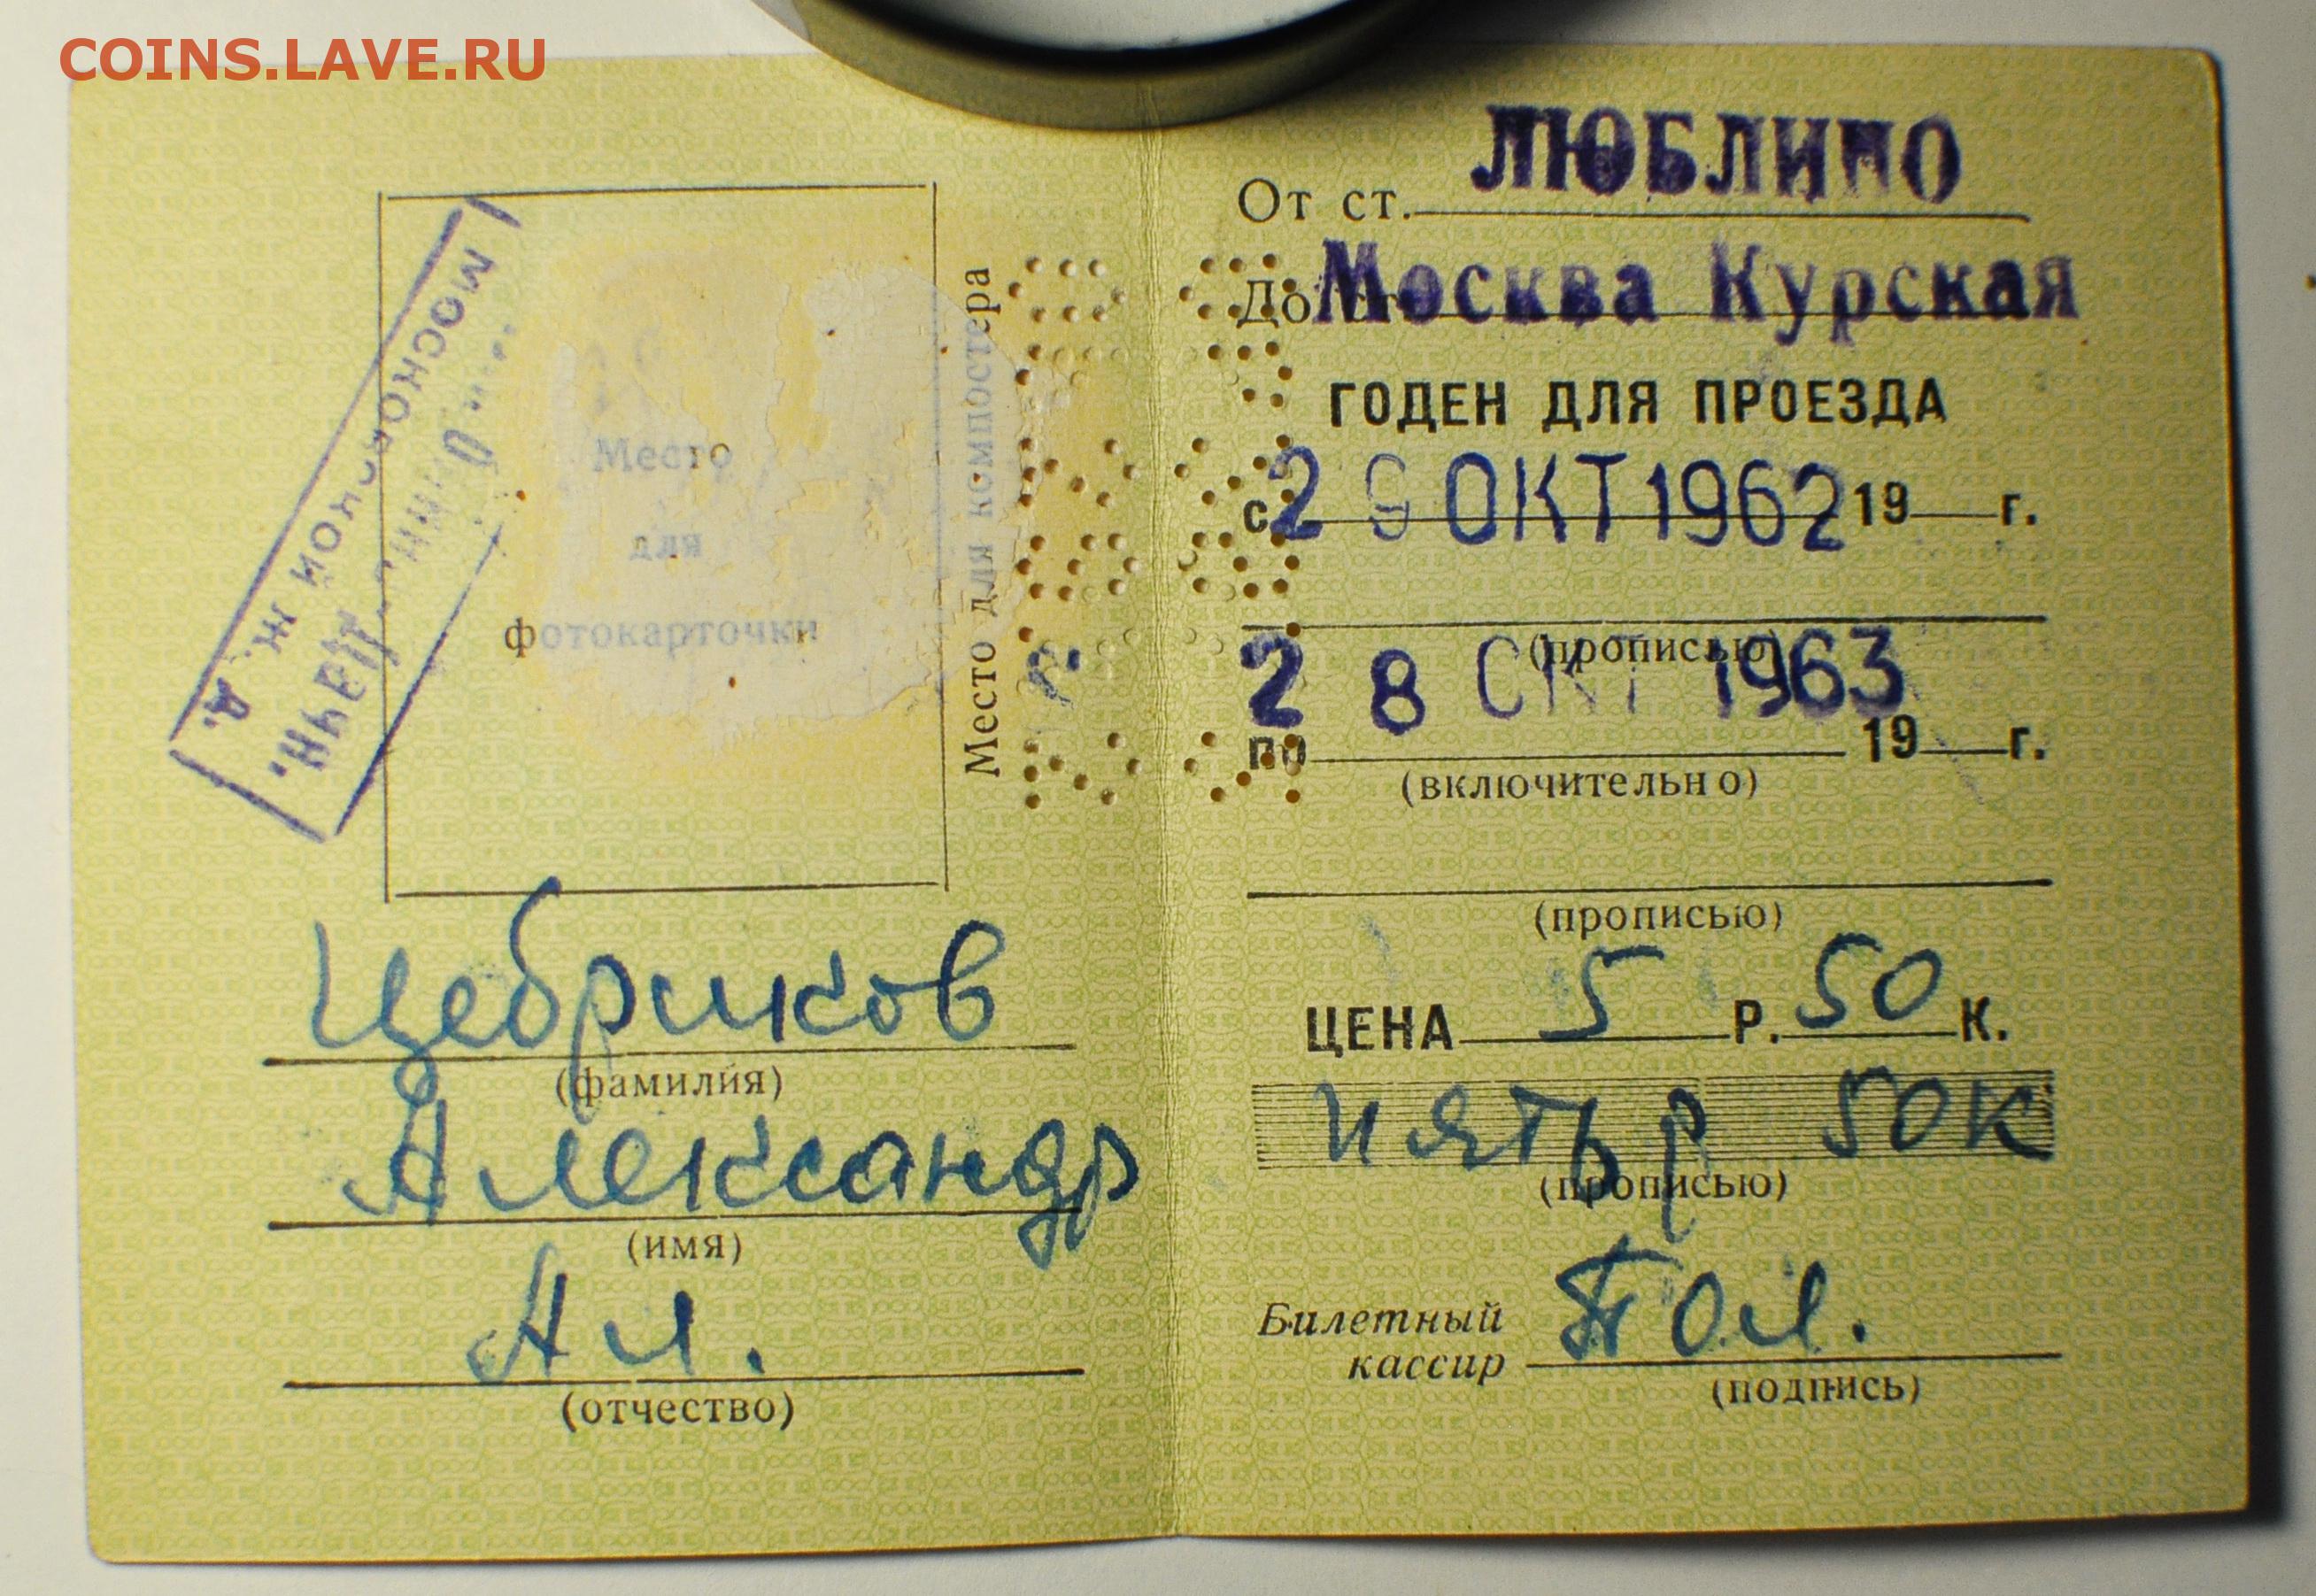 COINS.LAVE.RU
МОСКОВСКОЙ Ж. Д.
Место
для
фотокарточки
Место для компостера
Цебриков
(фамилия)
Александр
(имя)
Ал.
(отчество)
От ст. ЛЮБЛИНО
До ст. Москва Курская
ГОДЕН ДЛЯ ПРОЕЗДА
с 29 ОКТ 1962 19 г.
(прописью)
28 ОКТ 1963
по 19 г.
(включительно)
(прописью)
ЦЕНА 5 Р. 50 К.
пять р 50к
(прописью)
Билетный
кассир Пол.
(подпись)